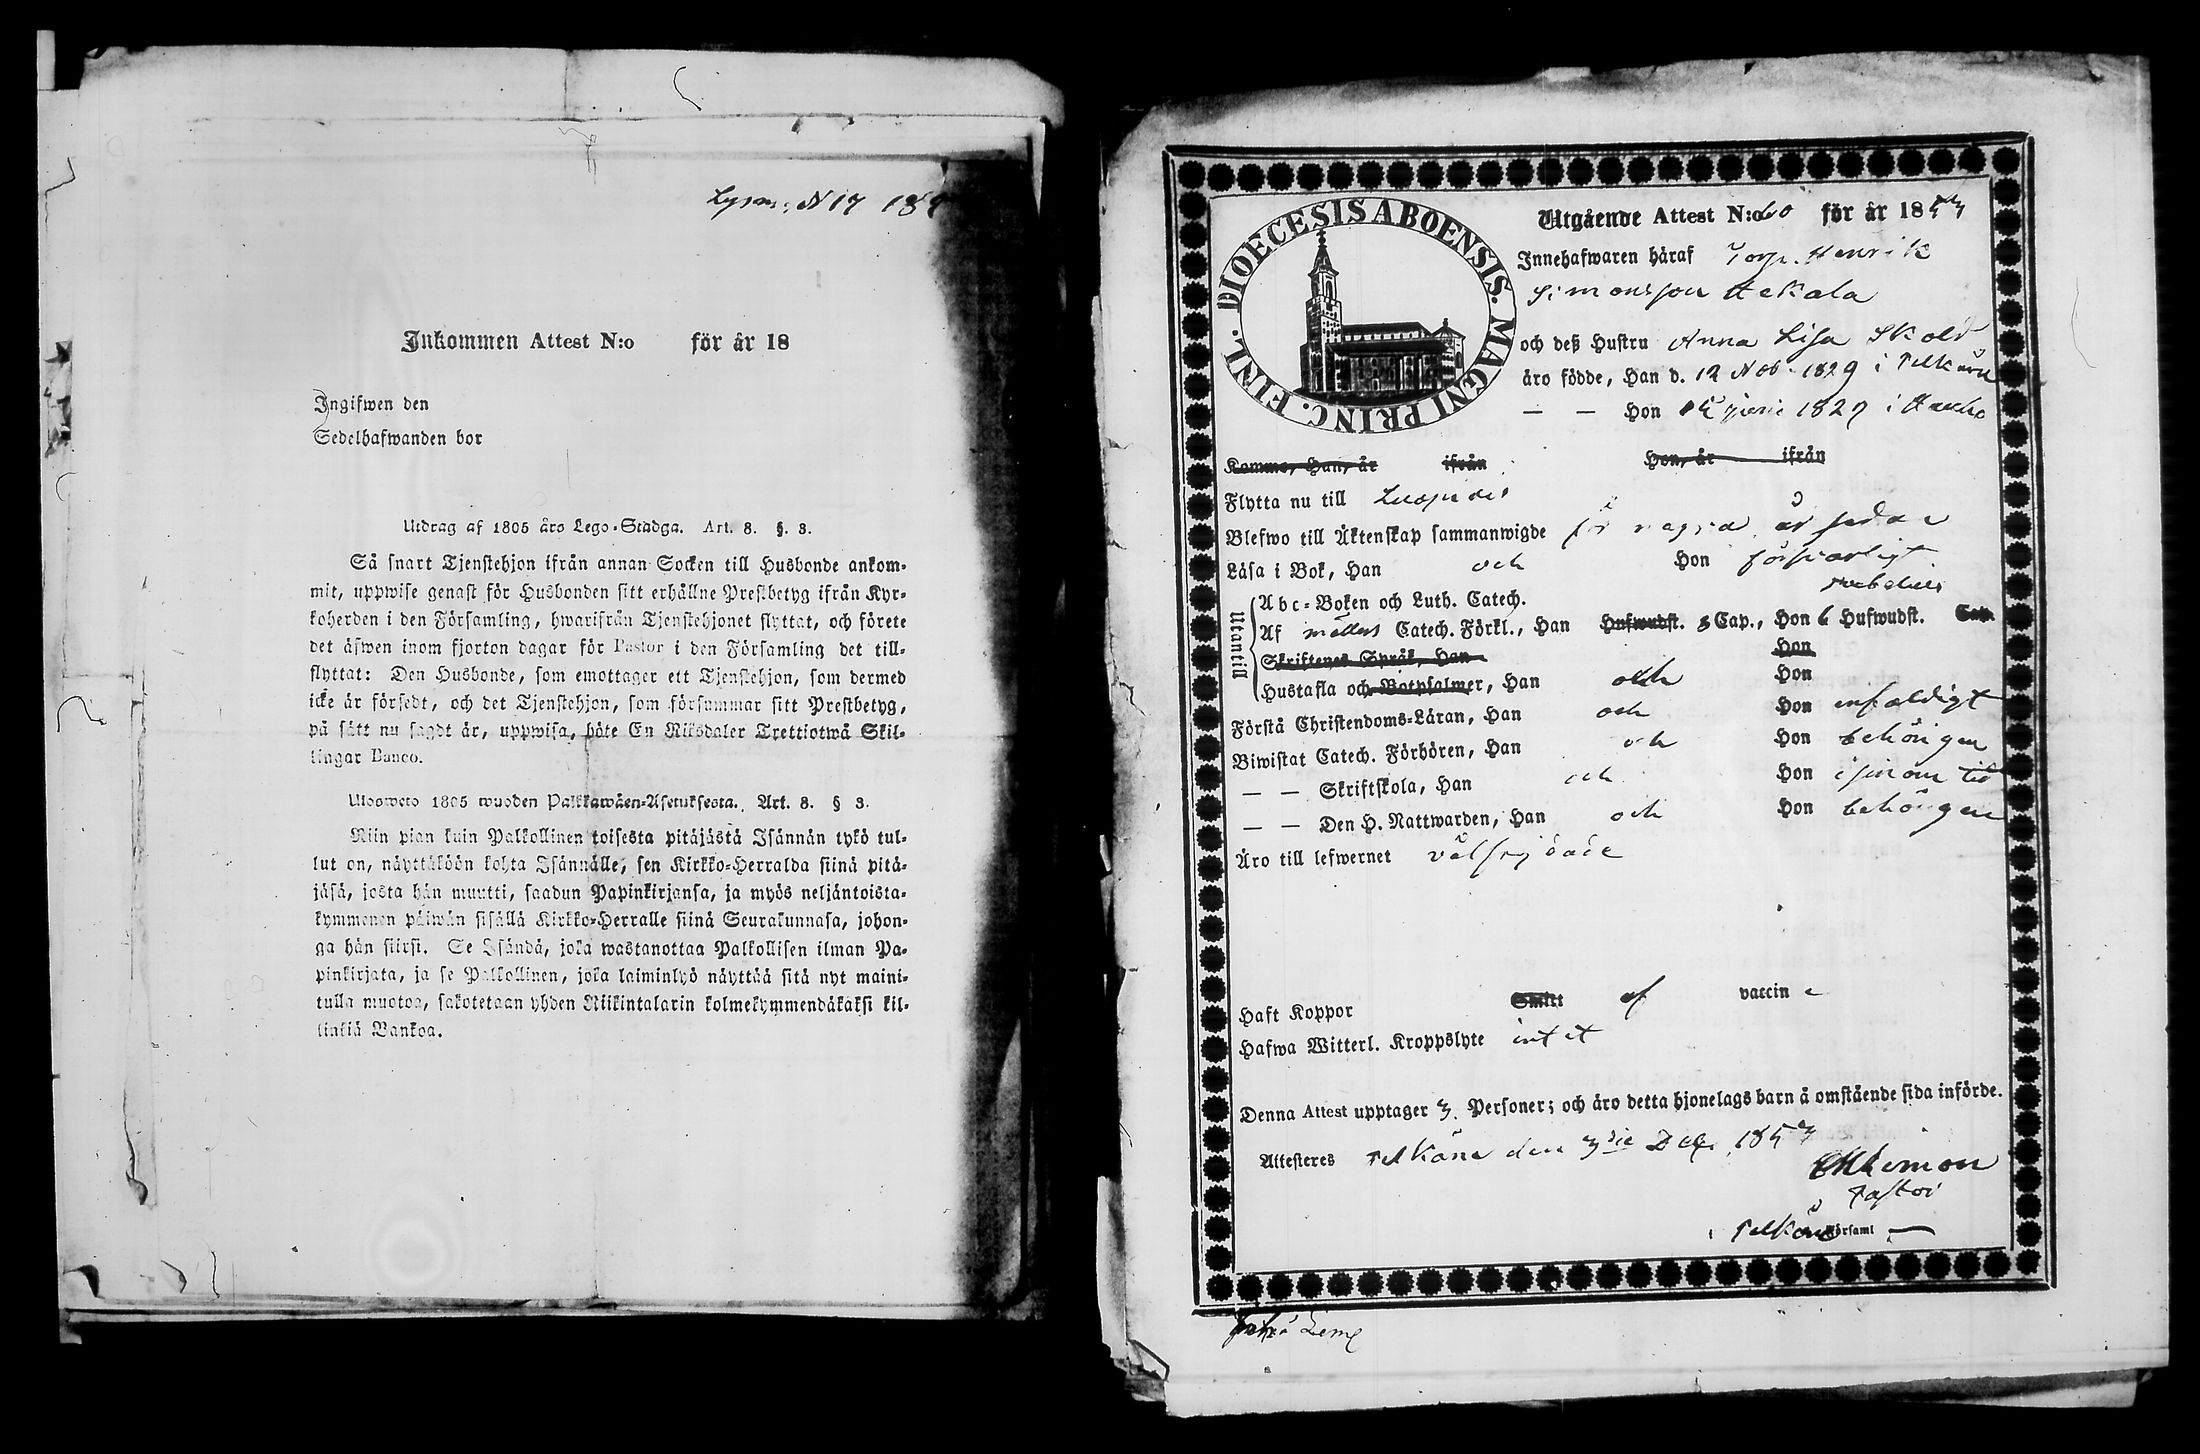 Inkommen Attest N:o för år 18
Ingifwen den
Sedelhafwanden bor
Utdrag af 1805 års Lego-Stadga. Art. 8. §. 3.
Så snart Tjenstehjon ifrån annan Socken till Husbonde ankom-
mit, uppwise genast för Husbonden sitt erhållne Prestbetyg ifrån Kyr-
koherden i den Församling, hwarifrån Tjenstehjonet flyttat, och förete
det äfwen inom fjorton dagar för Pastor i den Församling det till-
flyttat: Den Husbonde, som emottager ett Tjenstehjon, som dermed
icke är försedt, och det Tjenstehjon, som försummar sitt Prestbetyg,
på sätt nu sagdt är, uppwisa, böte En Riksdaler Trettiotwå Skil-
lingar Banco.
Ulosweto 1805 wuoden Palkkawäen-Asetuksesta. Art. 8. § 3.
Niin pian kuin Palkollinen toisesta pitäjästä Isännän tykö tul-
lut on, näyttäköön kohta Isännälle, sen Kirkko-Herralda siinä pitä-
jäsä, josta hän muutti, saadun Papinkirjansa, ja myös neljäntoista-
kymmenen päiwän sisällä Kirkko-Herralle siinä Seurakunnasa, johon-
ga hän siirsi. Se Isändä, joka wastanottaa Palkollisen ilman Pa-
pinkirjata, ja se Palkollinen, joka laiminlyö näyttää sitä nyt maini-
tulla muotoa, sakotetaan yhden Riikintalarin kolmekymmendäkaksi kil-
linkiä Bankoa.
DIOECESIS ABOENSIS. MAGNI PRINC. FINL.
Utgående Attest N:o för år 1853
Innehafwaren häraf Torp. Henrik
Simonsson Aekala
och deß Hustru Anna Lisa Sköld
äro födde, Han d. 12 Nov. 1829 i Pelkäne
— — Hon Juni 1829 i Hauho
Komne, Han, år ifrån Hon, år ifrån
Flytta nu till Luopiois
Blefwo till Äktenskap sammanwigde för några år sedan
Läsa i Bok, Han och Hon försvarligt
Utantill
Abc-Boken och Luth. Catech.
Af Catech. Förkl., Han Hufwudst. 5 Cap., Hon 6 Hufwudst. Cap.
Skriftenes Språk, Han Hon
Hustafla och Botpsalmer, Han och Hon
Förstå Christendoms-Läran, Han och Hon enfaldigt
Biwistat Catech. Förhören, Han och Hon behörigen
— — Skriftskola, Han och Hon i sinom tid
— — Den H. Nattwarden, Han och Hon behörigen
Äro till lefwernet välfrejdade
Haft Koppor Smitt af vaccine
Hafwa Witterl. Kroppslyte intet
Denna Attest upptager 3 Personer; och äro detta hjonelags barn å omstående sida införde.
Attesteres Pelkäne den 3die Dec. 1853
Pastor
i Pelkäne Församl